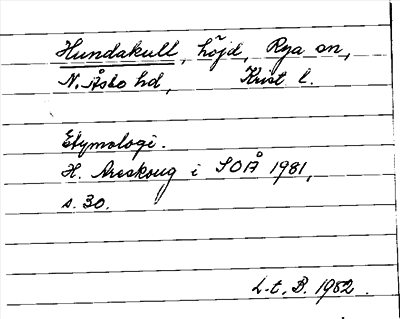 Hundakull, höjd, Rya sn,
N. Åsbo hd, Krist l.
Etymologi.
H. Areskoug i SOÅ 1981,
s. 30.
L-t, B. 1982.